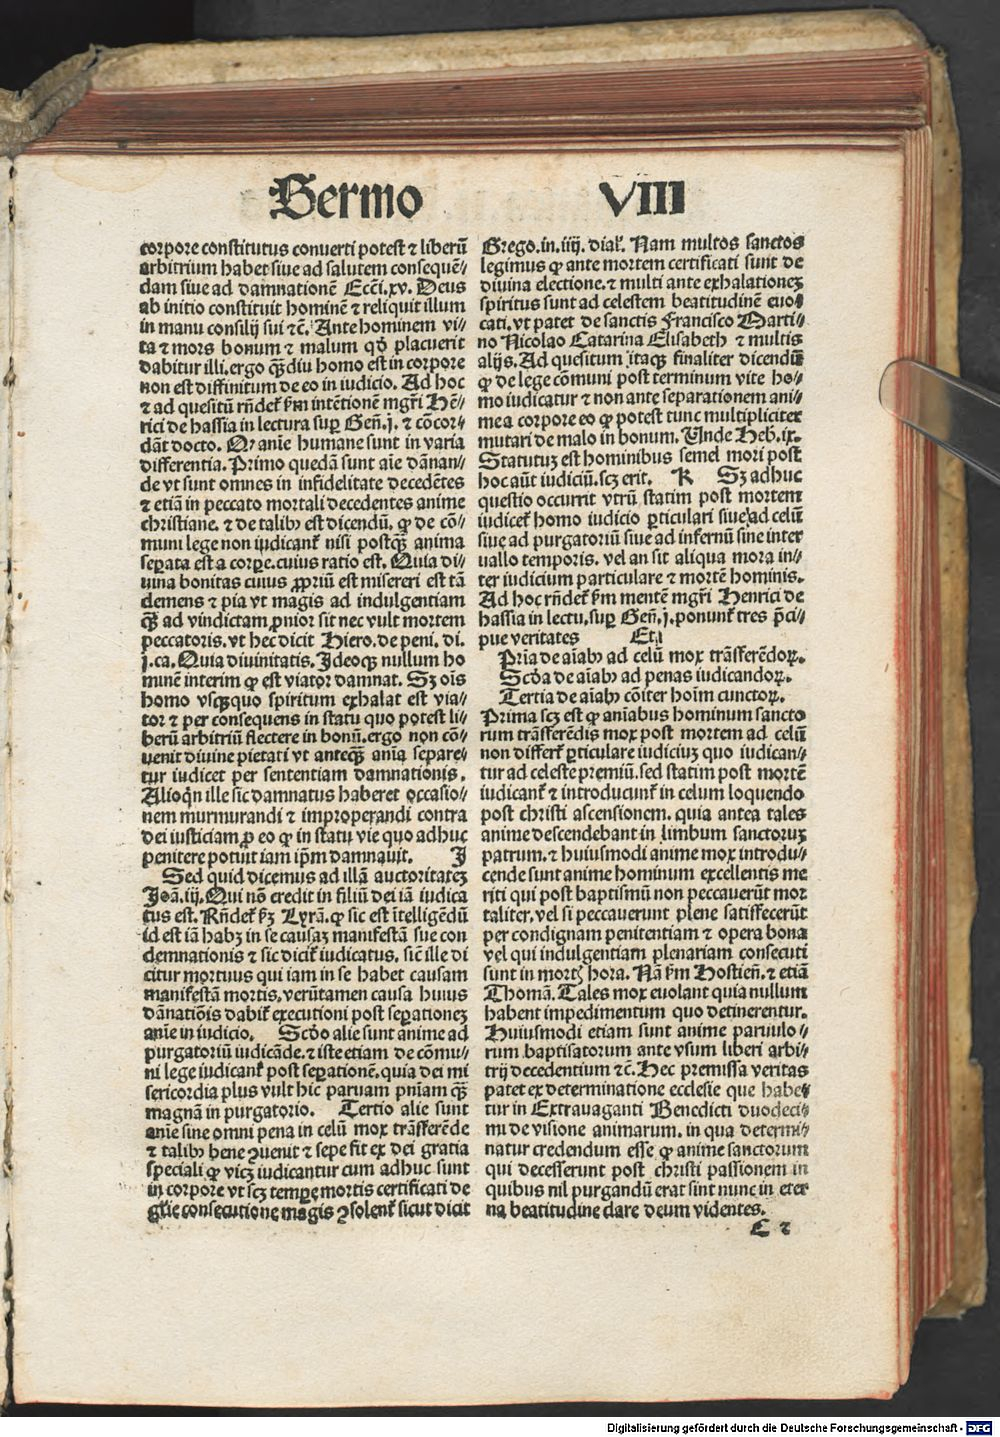 Sermo VIII
corpore constitutus conuerti potest ⁊ liberū
arbitrium habet siue ad salutem consequē⸗
dam siue ad damnationē Ecci̅.xv. Deus
ab initio constituit hominē ⁊ reliquit illum
in manu consilij sui ⁊c̄. Ante hominem vi⸗
ta ⁊ mors bonum ⁊ malum qd̓ placuerit
dabitur illi. ergo qᷓ̄diu homo est in corpore
non est diffinitum de eo in iudicio. Ad hoc
⁊ ad quesitū rn̄deṫ ẜm intētionē mgr̄i Hē⸗
rici de hassia in lectura suꝑ Gen̄.j. ⁊ cōcor⸗
dāt docto. Ꝙ anīe humane sunt in varia
differentia. Primo quedā sunt aīe dānan⸗
de vt sunt omnes in infidelitate decedētes
⁊ etiā in peccato mortali decedentes anime
christiane. ⁊ de talibꝰ est dicendū, ꝙ de cō⸗
muni lege non iudicanṫ nisi postqᷓ̄ anima
seꝑata est a corꝑe. cuius ratio est. Quia di⸗
uina bonitas cuius ꝓpriū est misereri est tā
clemens ⁊ pia vt magis ad indulgentiam
qᷓ̄ ad vindictam ꝓnior sit nec vult mortem
peccatoris. vt hec dicit Hiero. de peni. di.
j. ca. Quia diuinitatis. Ideoqꝫ nullum ho
minē interim ꝙ est viator damnat. Sꝫ oīs
homo vsqꝫquo spiritum exhalat est via⸗
tor ⁊ per consequens in statu quo potest li⸗
berū arbitriū flectere in bonū. ergo non cō⸗
uenit diuine pietati vt anteqᷓ̄ anīa separe⸗
tur iudicet per sententiam damnationis.
Alioqn̄ ille sic damnatus haberet occasio⸗
nem murmurandi ⁊ improperandi contra
dei iusticiam ꝓ eo ꝙ in statu vie quo adhuc
penitere potuit iam ip̄m damnauit. J
Sed quid dicemus ad illā auctoritateꝫ
Joā.iij. Qui nō credit in filiū dei iā iudica
tus est. Rn̄deṫ ẜꝫ Lyrā. ꝙ sic est ītelligēdū
id est iā habꝫ in se causaꝫ manifestā sue con
demnationis ⁊ sic diciṫ iudicatus. sic̄ ille di
citur mortuus qui iam in se habet causam
manifestā mortis, verūtamen causa huius
dānatiōis dabiṫ executioni post seꝑationeꝫ
anīe in iudicio. Scd̓o alie sunt anime ad
purgatoriū iudicāde. ⁊ iste etiam de cōmu⸗
ni lege iudicanṫ post seꝑationē. quia dei mi
sericordia plus vult hic paruam pn̄iam qᷓ̄
magnā in purgatorio. Tertio alie sunt
anīe sine omni pena in celū mox trāsferēde
⁊ talibꝰ bene ꝯuenit ⁊ sepe fit ex dei gratia
speciali ꝙ vicꝫ iudicantur cum adhuc sunt
in corpore vt scꝫ tempeꝫ mortis certificati de
gl̄ie consecutione magis ꝯsolenṫ sicut dicit
Grego. in. iiij. dial̓. Nam multos sanctos
legimus ꝙ ante mortem certificati sunt de
diuina electione. ⁊ multi ante exhalationeꝫ
spiritus sunt ad celestem beatitudinē euo⸗
cati. vt patet de sanctis Francisco Marti⸗
no Nicolao Catarina Elisabeth ⁊ multis
alijs. Ad quesitum itaqꝫ finaliter dicendū
ꝙ de lege cōmuni post terminum vite ho⸗
mo iudicatur ⁊ non ante separationem ani⸗
me a corpore eo ꝙ potest tunc multipliciter
mutari de malo in bonum. Unde Heb. ix.
Statutuꝫ est hominibus semel mori post
hoc aūt iudiciū. scꝫ erit. K Sꝫ adhuc
questio occurrit vtrū statim post mortem
iudiceṫ homo iudicio ꝑticulari siue ad celū
siue ad purgatoriū siue ad infernū sine inter
uallo temporis. vel an sit aliqua mora in⸗
ter iudicium particulare ⁊ mortē hominis.
Ad hoc rn̄deṫ ẜm mentē mgr̄i Henrici de
hassia in lectu. suꝑ Gen̄.j. ponunṫ tres p̄ci⸗
pue veritates Et
Pria de aīabꝰ ad celū mox trāsferēdoꝝ.
Scd̓a de aīabꝰ ad penas iudicandoꝝ.
Tertia de aīabꝰ cōiter hoīm cunctoꝝ.
Prima scꝫ est ꝙ anīabus hominum sancto
rum trāsferēdis mox post mortem ad celū
non differṫ ꝑticulare iudiciuꝫ quo iudican⸗
tur ad celeste premiū. sed statim post mortē
iudicanṫ ⁊ introducunṫ in celum loquendo
post christi ascensionem. quia antea tales
anime descendebant in limbum sanctoruꝫ
patrum. ⁊ huiusmodi anime mox introdu⸗
cende sunt anime hominum excellentis me
riti qui post baptismū non peccauerūt mor
taliter, vel si peccauerunt plene satisfecerūt
per condignam penitentiam ⁊ opera bona
vel qui indulgentiam plenariam consecuti
sunt in mortꝭ hora. Nā ẜm Hostien̄. ⁊ etiā
Thomā. Tales mox euolant quia nullum
habent impedimentum quo detinerentur.
Huiusmodi etiam sunt anime paruulo⸗
rum baptisatorum ante vsum liberi arbi⸗
trij decedentium ⁊c̄. Hec premissa veritas
patet ex determinatione ecclesie que habe⸗
tur in Extrauaganti Benedicti duodeci⸗
mi de visione animarum. in qua determi⸗
natur credendum esse ꝙ anime sanctorum
qui decesserunt post christi passionem in
quibus nil purgandū erat sint nunc in eter
na beatitudine clare deum videntes.
C 2
Digitalisierung gefördert durch die Deutsche Forschungsgemeinschaft - DFG